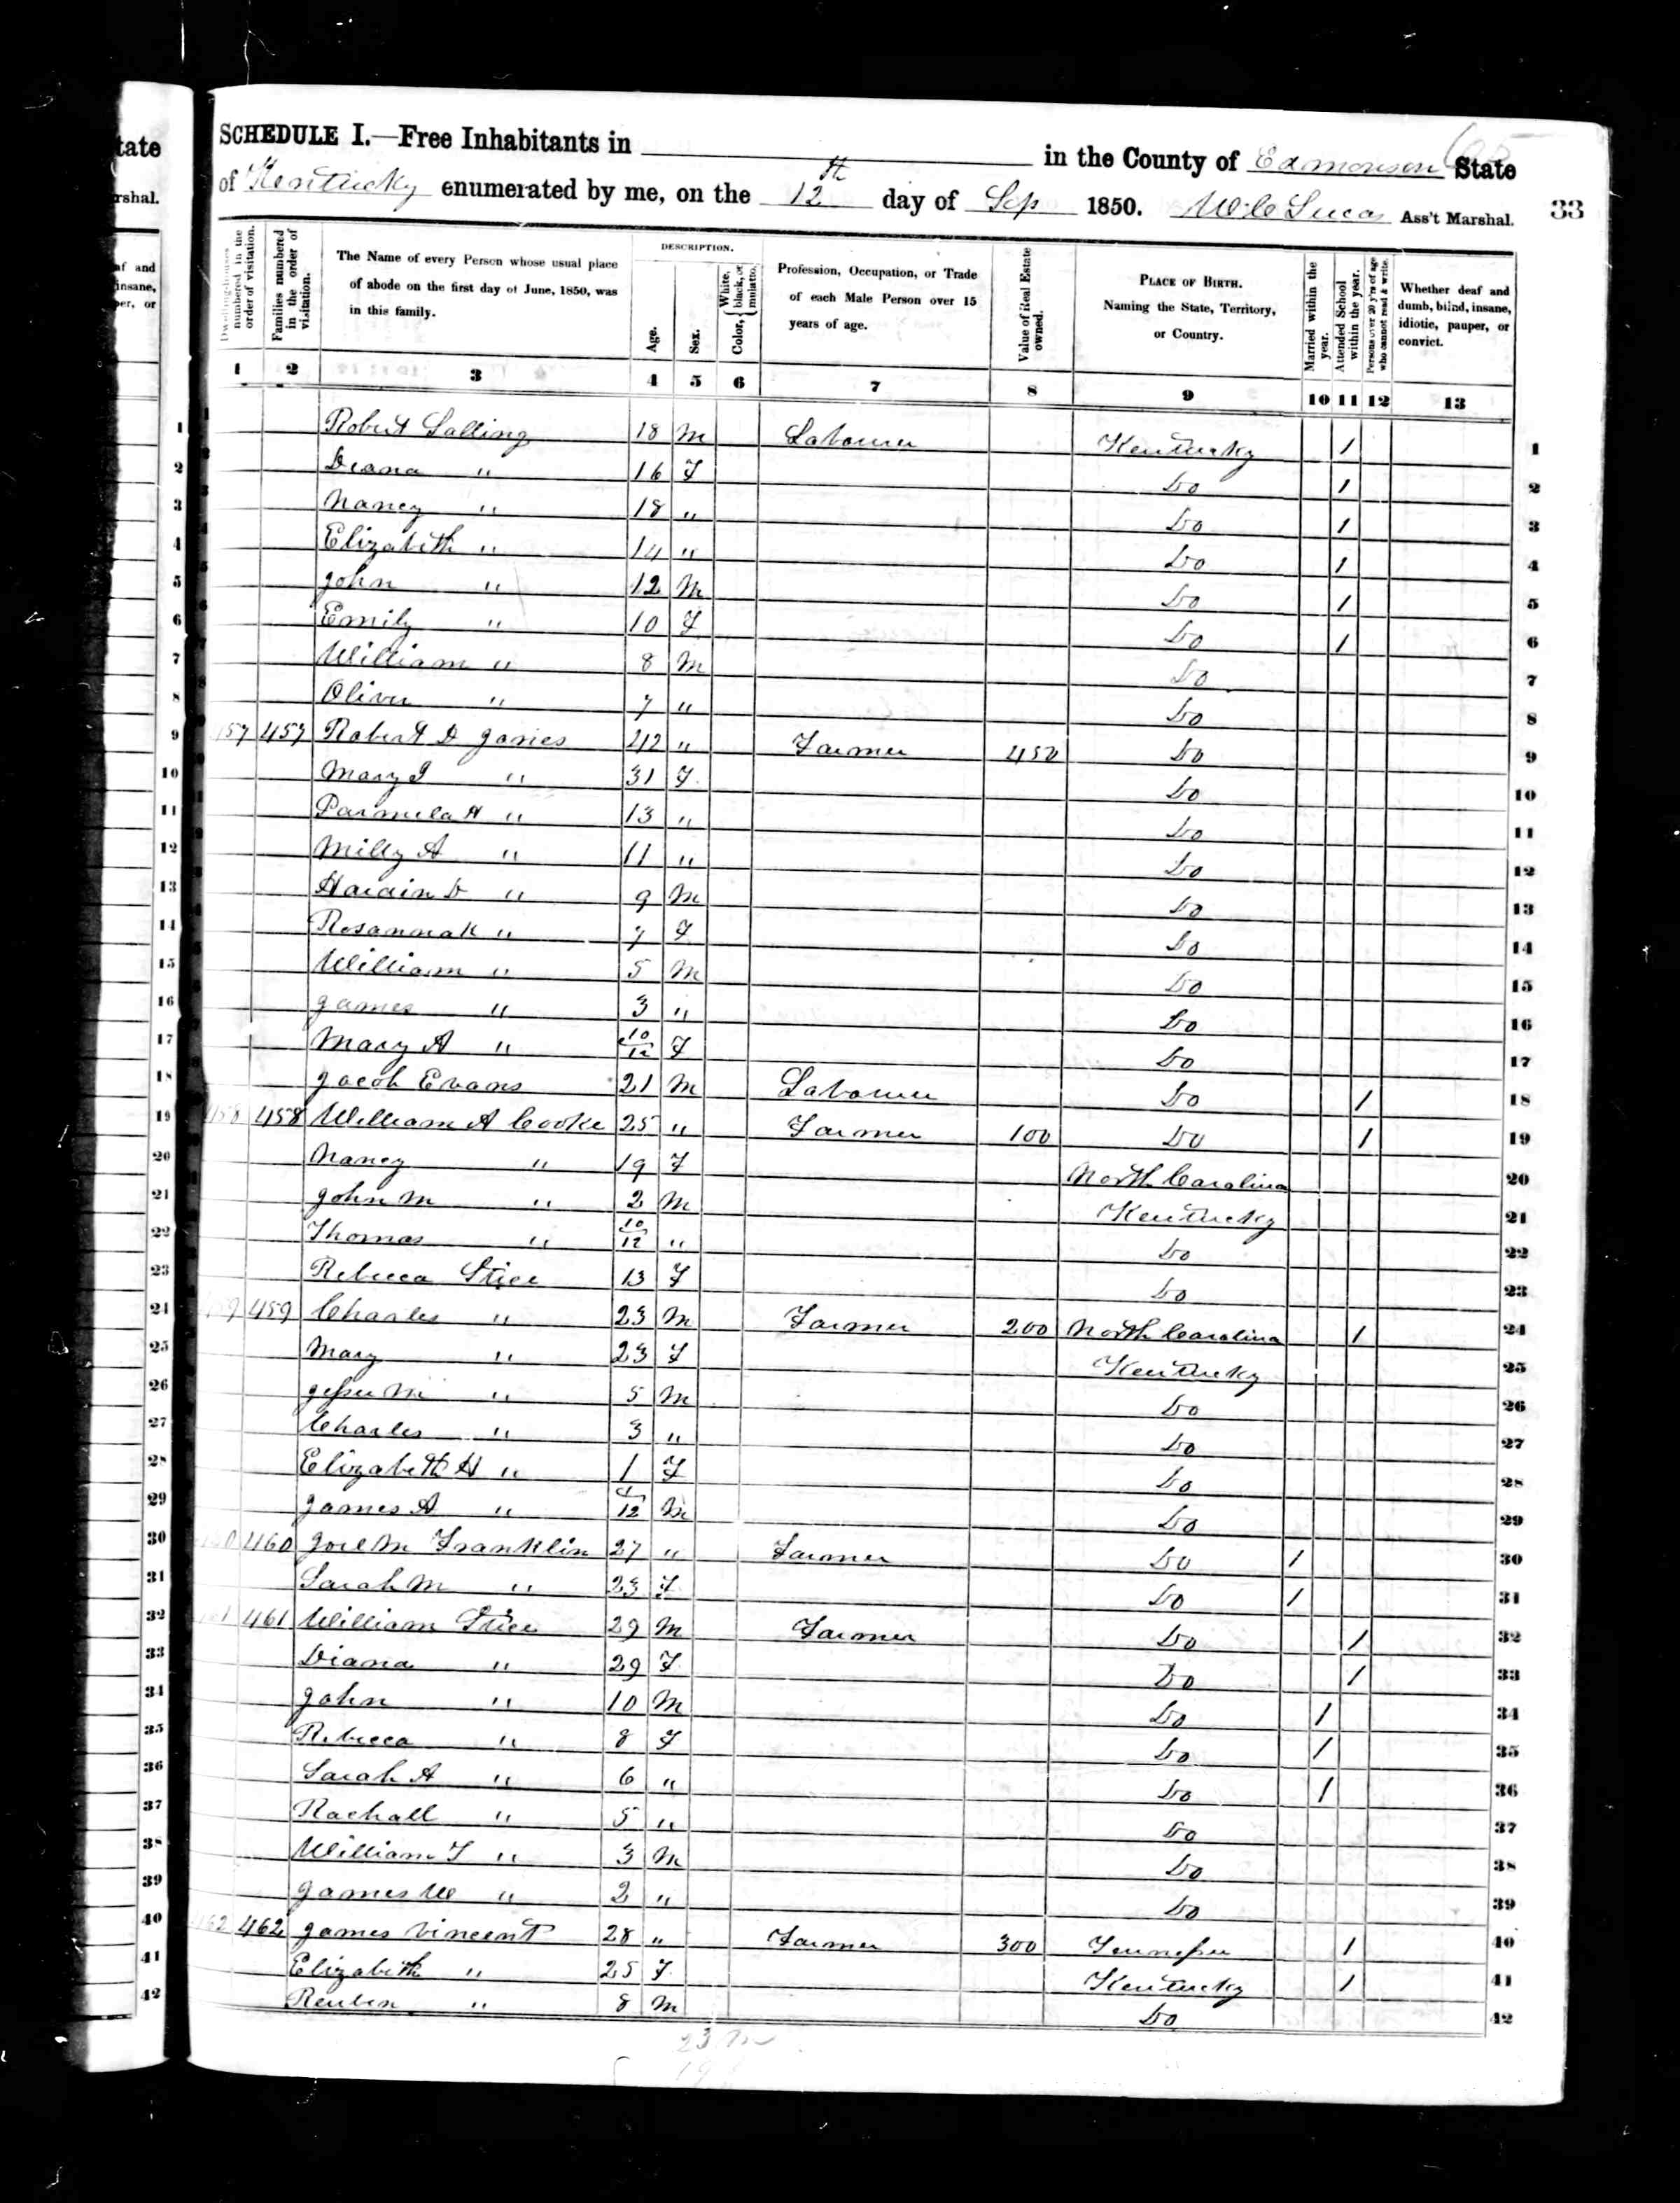 tate
rshal.
af and
insane,
per, or
SCHEDULE I.—Free Inhabitants in in the County of Edmonson State
of Kentucky enumerated by me, on the 12th day of Sep 1850. W C Lucas Ass't Marshal. 33
Dwelling-houses numbered in the order of visitation.
Families numbered in the order of visitation.
The Name of every Person whose usual place of abode on the first day of June, 1850, was in this family.
DESCRIPTION.
Age.
Sex.
Color, White, black, or mulatto.
Profession, Occupation, or Trade of each Male Person over 15 years of age.
Value of Real Estate owned.
PLACE OF BIRTH. Naming the State, Territory, or Country.
Married within the year.
Attended School within the year.
Persons over 20 y'rs of age who cannot read & write.
Whether deaf and dumb, blind, insane, idiotic, pauper, or convict.
1 2 3 4 5 6 7 8 9 10 11 12 13
1 Robert Salling 18 M Labourer Kentucky / 1
2 Diana " 16 F Do / 2
3 Nancy " 18 " Do / 3
4 Elizabeth " 14 " Do / 4
5 John " 12 M Do / 5
6 Emily " 10 F Do / 6
7 William " 8 M Do 7
8 Oliver " 7 " Do 8
9 457 457 Robert D Jones 42 " Farmer 450 Do 9
10 Mary J " 31 F Do 10
11 Parmela H " 13 " Do 11
12 Milly A " 11 " Do 12
13 Hardin D " 9 M Do 13
14 Rosannah " 7 F Do 14
15 William " 5 M Do 15
16 James " 3 " Do 16
17 Mary A " 10/12 F Do 17
18 Jacob Evans 21 M Labourer Do / 18
19 458 458 William A Cooke 25 " Farmer 100 Do / 19
20 Nancy " 19 F North Carolina 20
21 John M " 2 M Kentucky 21
22 Thomas " 10/12 " Do 22
23 Rebecca Stice 13 F Do 23
24 459 459 Charles " 23 M Farmer 200 North Carolina / 24
25 Mary " 23 F Kentucky 25
26 Jesse M " 5 M Do 26
27 Charles " 3 " Do 27
28 Elizabeth H " 1 F Do 28
29 James A " /12 M Do 29
30 460 460 Joel M Franklin 27 " Farmer Do / 30
31 Sarah M " 23 F Do / 31
32 461 461 William Stice 29 M Farmer Do / 32
33 Diana " 29 F Do / 33
34 John " 10 M Do / 34
35 Rebecca " 8 F Do / 35
36 Sarah A " 6 " Do / 36
37 Rachall " 5 " Do 37
38 William T " 3 M Do 38
39 James W " 2 " Do 39
40 462 462 James Vincent 28 " Farmer 300 Tennessee / 40
41 Elizabeth " 25 F Kentucky / 41
42 Reuben " 8 M Do 42
23 m